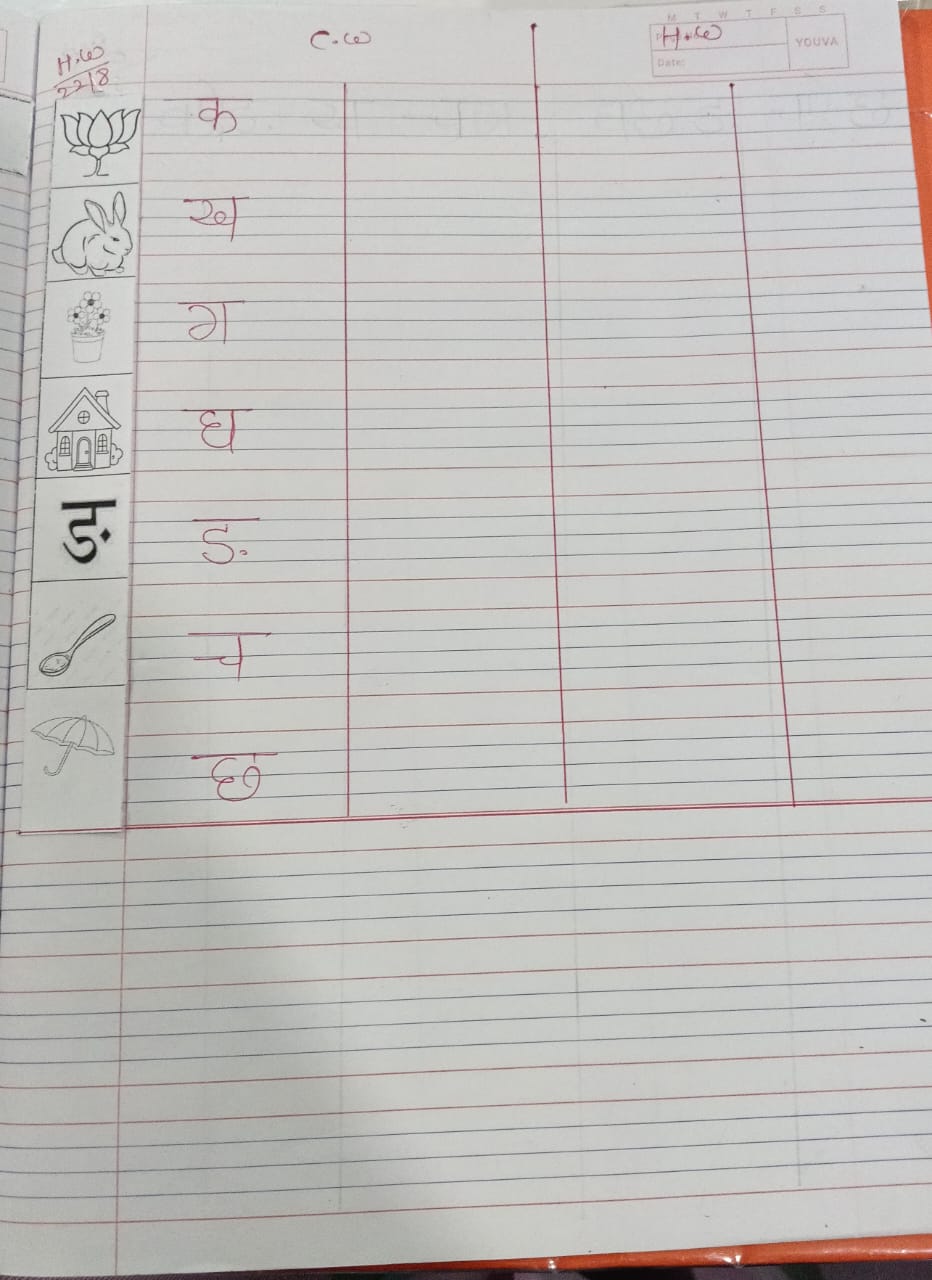 M T W T F S S
C.W
H.W
YOUVA
Date:
H.W
22/8
क
ख
ग
घ
ङ
ङ
च
छ